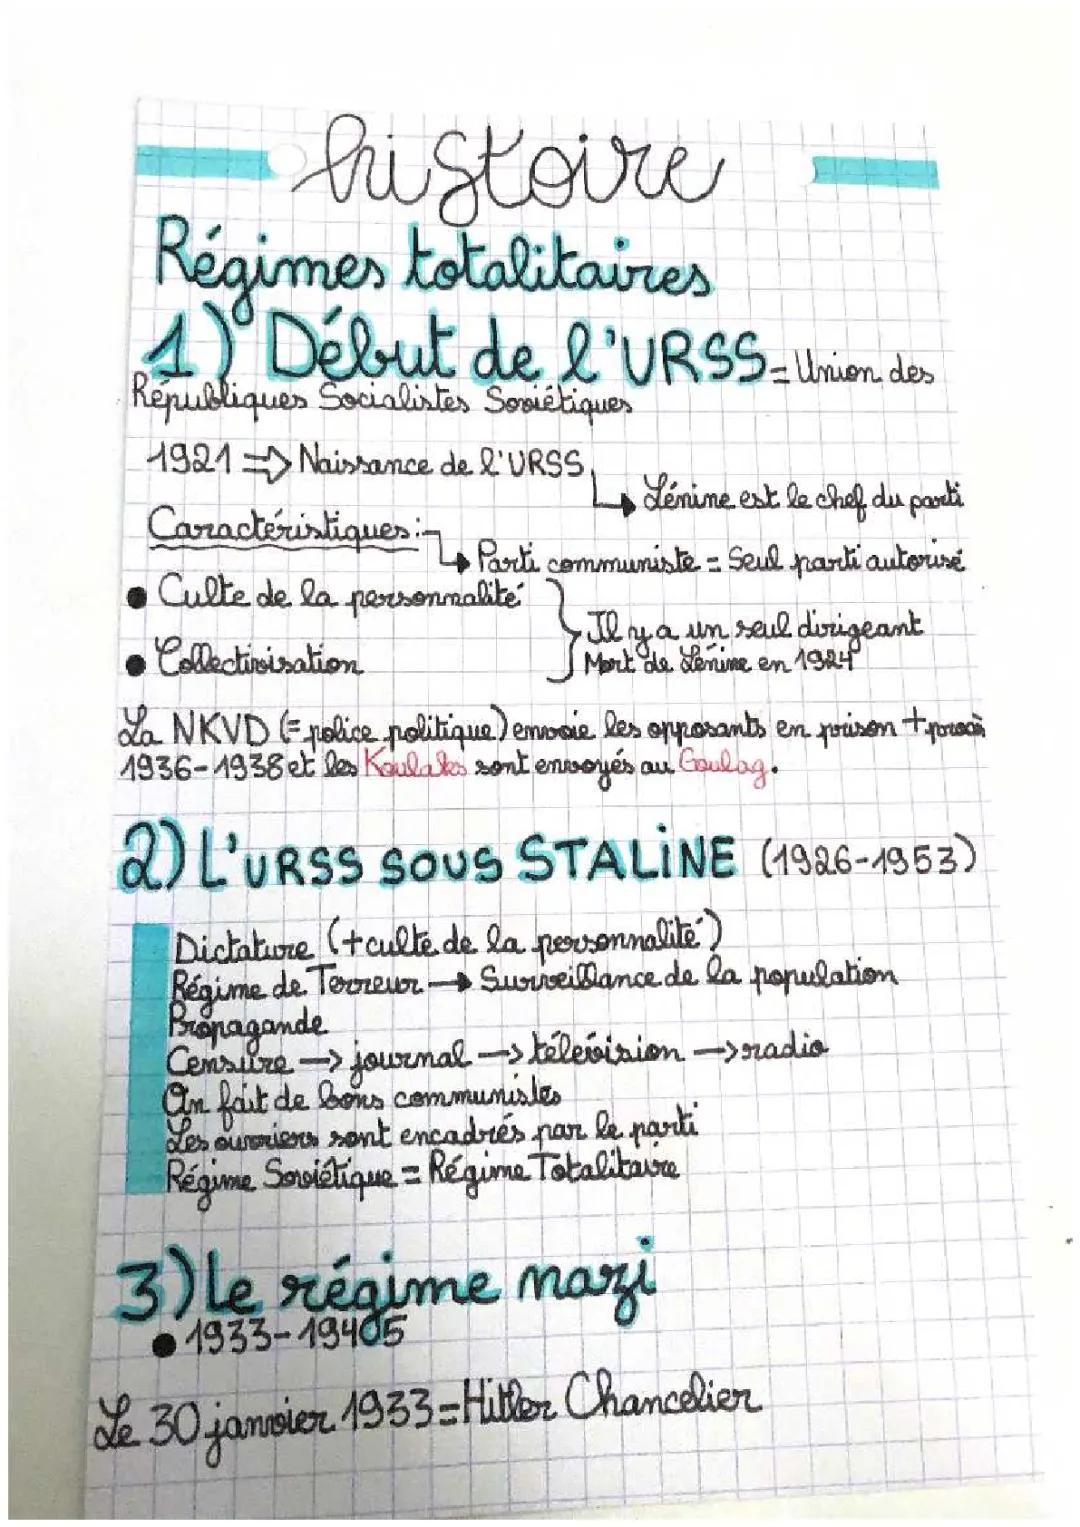 histoire
Régimes totalitaires
1) Début de l'URSS = Union des
Républiques Socialistes Soviétiques
1921 => Naissance de l'URSS
↳ Lénine est le chef du parti
Caractéristiques :
↳ Parti communiste = Seul parti autorisé
• Culte de la personnalité
Il y a un seul dirigeant
• Collectivisation
Mort de Lénine en 1924
La NKVD (= police politique) envoie les opposants en prison + procès
1936-1938 et les Koulaks sont envoyés au Goulag.
2) L'URSS SOUS STALINE (1926-1953)
Dictature (+ culte de la personnalité)
Régime de Terreur → Surveillance de la population
Propagande
Censure → journal → télévision → radio
On fait de bons communistes
Les ouvriers sont encadrés par le parti
Régime Soviétique = Régime Totalitaire
3) Le régime nazi
• 1933-1945
Le 30 janvier 1933 = Hitler Chancelier